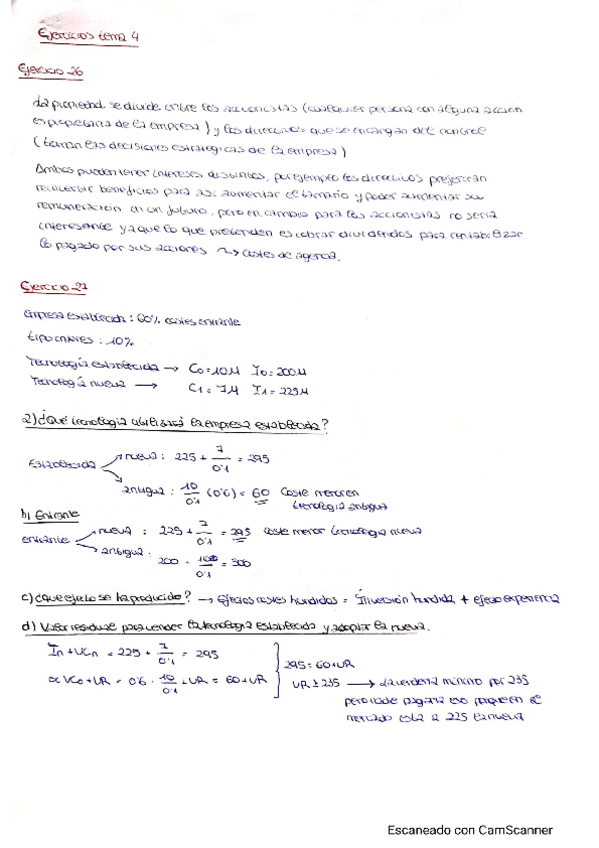 Ejercicios tema 4
Ejercicio 26
La propiedad se divide entre los accionistas (cualquier persona con alguna acción
es propietaria de la empresa) y los directivos que se encargan del control
(toman las decisiones estratégicas de la empresa)
Ambos pueden tener intereses distintos, por ejemplo los directivos preferirán
reinvertir beneficios para así aumentar el tamaño y poder aumentar su
remuneración en un futuro, pero en cambio para los accionistas no sería
interesante ya que lo que pretenden es cobrar dividendos para rentabilizar
lo pagado por sus acciones ⇝ costes de agencia.
Ejercicio 27
Empresa establecida : 60% costes entrante
tipo interés : 10%
Tecnología establecida → C0 = 10M I0 = 200M
Tecnología nueva → C1 = 7M I1 = 225M
a) ¿Qué tecnología utilizará la empresa establecida?
Establecida nueva : 225 + 7/0'1 = 295
antigua : 10/0'1 (0'6) = 60 Coste menor en
tecnología antigua
b) Entrante
entrante nueva : 225 + 7/0'1 = 295 coste menor tecnología nueva
antigua :
200 + 10/0'1 = 300
c) ¿Qué efecto se ha producido? → Efectos costes hundidos = Inversión hundida + efecto experiencia
d) Valor residual para vender la tecnología establecida y adoptar la nueva.
In + VCn = 225 + 7/0'1 = 295
∝ VC0 + VR = 0'6 · 10/0'1 + VR = 60 + VR
295 = 60 + VR
VR ≥ 235 → La vendería mínimo por 235
pero nadie pagaría eso porque en el
mercado está a 225 la nueva
Escaneado con CamScanner